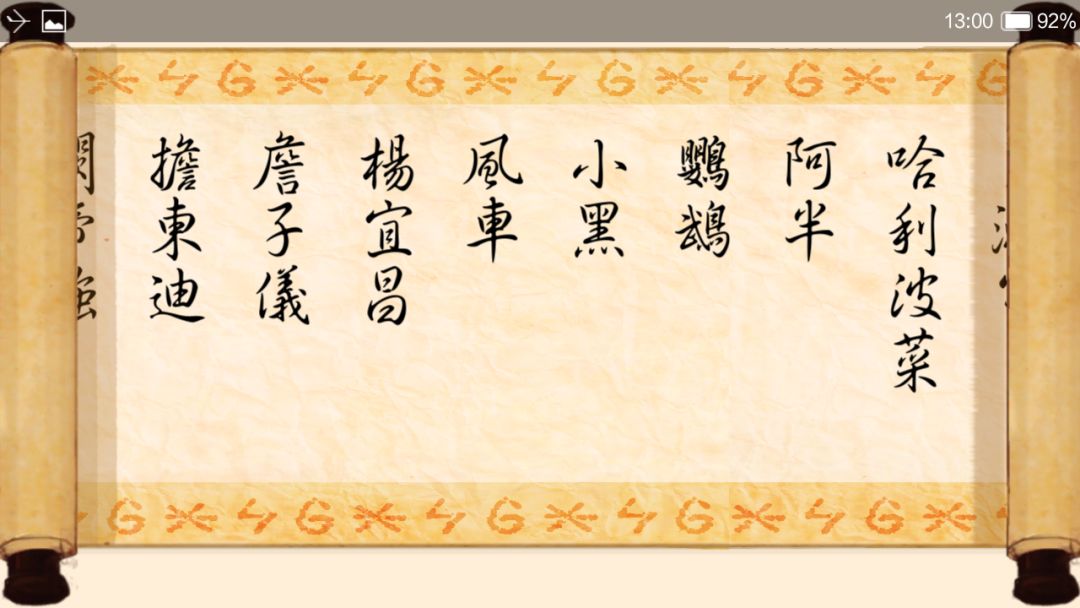 13:00
92%
哈利波菜
阿半
鸚鵡
小黑
風車
楊宜昌
詹子儀
擔東迪